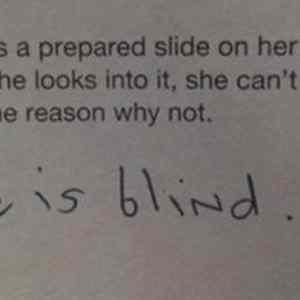 s a prepared slide on her
he looks into it, she can't
e reason why not.
is blind.